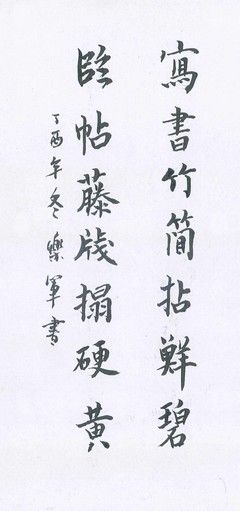 寫書竹簡拈鮮碧
臨帖藤牋搨硬黄
丁酉年冬樂軍書